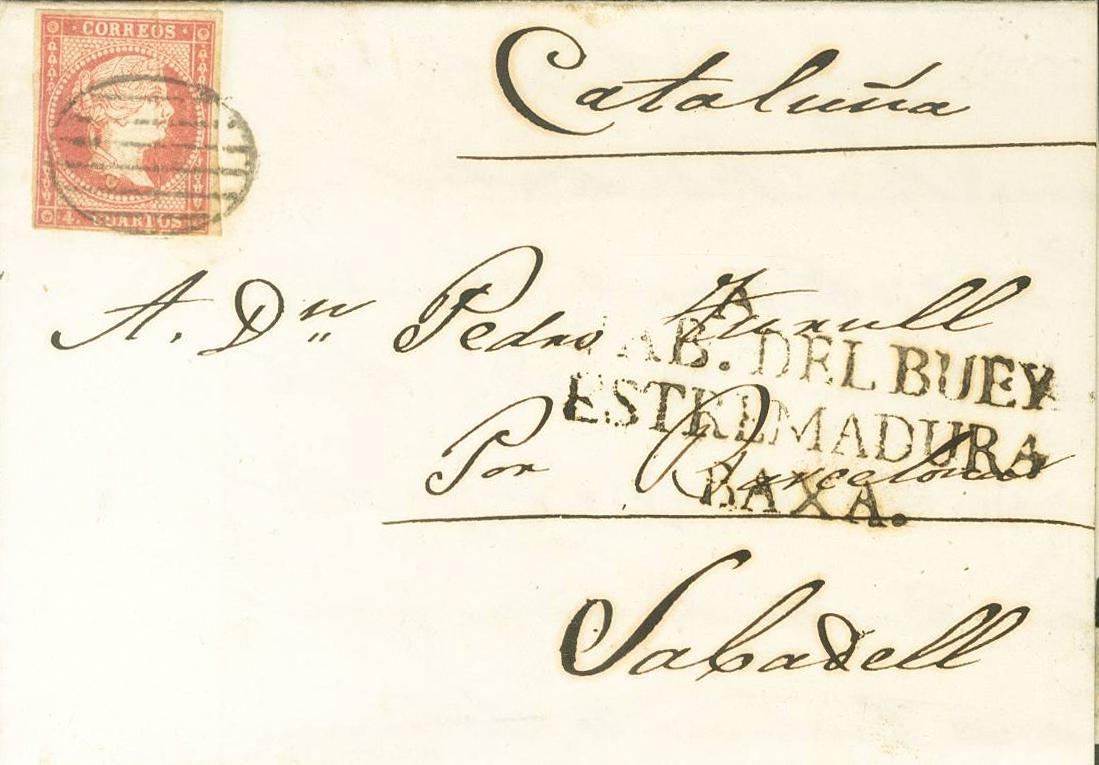 CORREOS
4. CUARTOS
Cataluña
A. Dn Pedro Turull
A
AB. DEL BUEY
ESTREMADURA
BAXA.
Por Barcelona
Sabadell